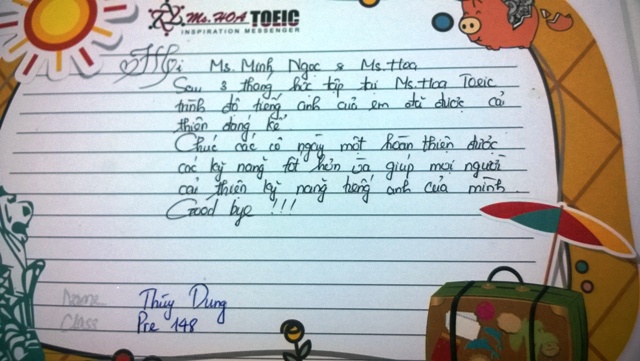 Ms. HOA TOEIC
INSPIRATION MESSENGER
Hi Ms. Minh Ngọc & Ms. Hoa
Sau 3 tháng học tập tại Ms. Hoa Toeic
trình độ tiếng anh của em đã được cải
thiện đáng kể
Chúc các cô ngày một hoàn thiện được
các kỹ năng tốt hơn và giúp mọi người
cải thiện kỹ năng tiếng anh của mình.
Good bye !!!
Name Thùy Dung
Class Pre 148